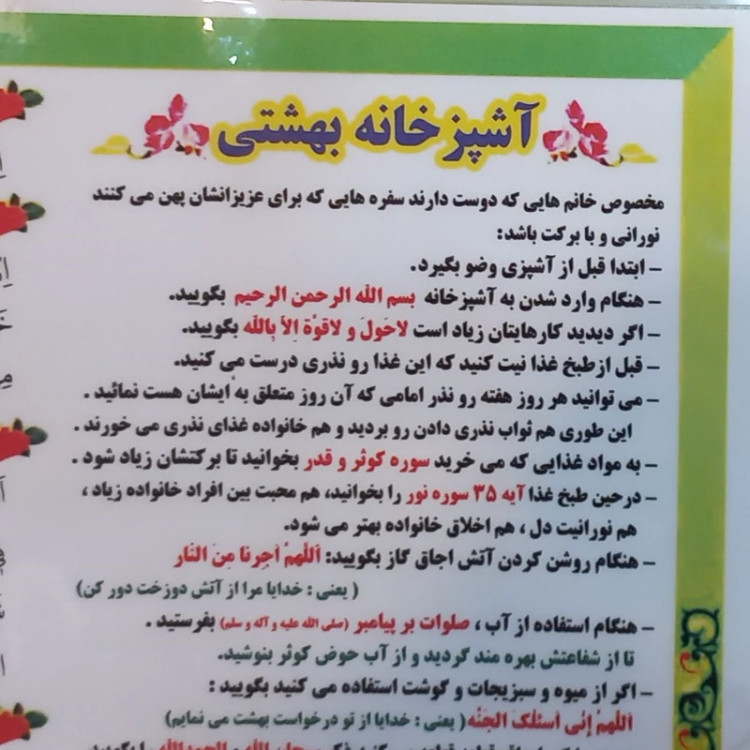 آشپزخانه بهشتی
مخصوص خانم هایی که دوست دارند سفره هایی که برای عزیزانشان پهن می کنند
نورانی و با برکت باشد:
- ابتدا قبل از آشپزی وضو بگیرد.
- هنگام وارد شدن به آشپزخانه بسم الله الرحمن الرحیم بگویید.
- اگر دیدید کارهایتان زیاد است لاحَولَ و لاقوَّة اِلاّ بِاللّه بگویید.
- قبل از طبخ غذا نیت کنید که این غذا رو نذری درست می کنید.
- می توانید هر روز هفته رو نذر امامی که آن روز متعلق به ایشان هست نمائید .
این طوری هم ثواب نذری دادن رو بردید و هم خانواده غذای نذری می خورند .
- به مواد غذایی که می خرید سوره کوثر و قدر بخوانید تا برکتشان زیاد شود .
- درحین طبخ غذا آیه ۳۵ سوره نور را بخوانید، هم محبت بین افراد خانواده زیاد ،
هم نورانیت دل ، هم اخلاق خانواده بهتر می شود.
- هنگام روشن کردن آتش اجاق گاز بگویید: اَللّهُمَّ اَجِرنا مِنَ النّار
( یعنی : خدایا مرا از آتش دوزخت دور کن)
- هنگام استفاده از آب ، صلوات بر پیامبر (صلی الله علیه و آله و سلم) بفرستید .
تا از شفاعتش بهره مند گردید و از آب حوض کوثر بنوشید.
- اگر از میوه و سبزیجات و گوشت استفاده می کنید بگویید :
اَللّهُم اِنّی اَسئَلُکَ الجَنَّه ( یعنی : خدایا از تو درخواست بهشت می نمایم)